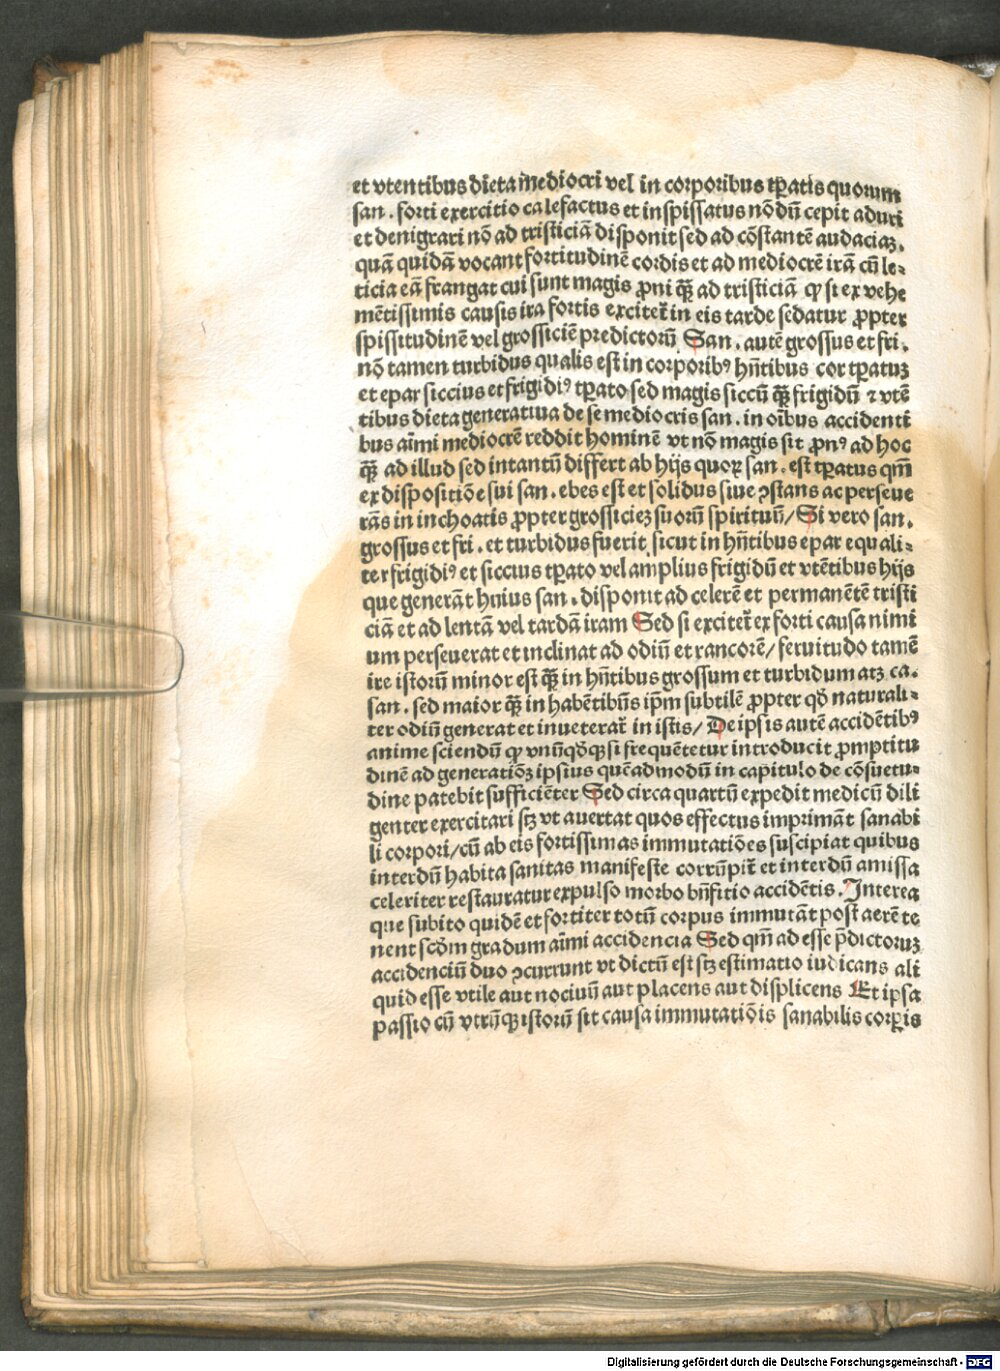 et vtentibus dieta mediocri vel in corporibus tꝑatis quorum
san . forti exercitio calefactus et inspissatus nō dū cepit aduri
et denigrari nō ad tristiciā disponit sed ad cōstantē audaciaꝫ.
quā quidā vocant fortitudinē cordis et ad mediocrē irā cū le⸗
ticia eā frangat cui sunt magis ꝓni q̄ꝫ ad tristiciā ꝙ si ex vehe
mētissimis causis ira fortis excitet̄ in eis tarde sedatur ꝓpter
spissitudinē vel grossiciē predictorū San . autē grossus et fri .
nō tamen turbidus qualis est in corporibꝰ hn̄tibus cor tꝑatuꝫ
et epar siccius et frigidiꝰ tꝑato sed magis siccū q̄ꝫ frigidū ⁊ vtē
tibus dieta generatiua de se mediocris san . in oībus accidenti
bus aīmi mediocrē reddit hominē vt nō magis sit ꝓnꝰ ad hoc
q̄ꝫ ad illud sed intantū differt ab hijs quoꝝ san . est tꝑatus qm̄
ex dispositiōe sui san . ebes est et solidus siue ꝯstans ac perseue
rās in inchoatis ꝓpter grossicieꝫ suorū spirituū/ Si vero san .
grossus et fri . et turbidus fuerit sicut in hn̄tibus epar equali⸗
ter frigidiꝰ et siccius tꝑato vel amplius frigidū et vtētibus hijs
que generāt huius san . disponit ad celerē et permanētē tristi
ciā et ad lentā vel tardā iram Sed si excitet̄ ex forti causa nimi
um perseuerat et inclinat ad odiū et rancorē/ feruitudo tamē
ire istorū minor est q̄ꝫ in hn̄tibus grossum et turbidum atꝫ ca .
san . sed maior q̄ꝫ in habētibus ip̄m subtilē ꝓpter qđ naturali⸗
ter odiū generat et inueterat̄ in istis/ De ipsis autē accidētibꝰ
anime sciendū ꝙ vnūqđqꝫ si frequētetur introducit ꝓmptitu
dinē ad generatiōꝫ ipsius quēadmodū in capitulo de cōsuetu⸗
dine patebit sufficiēter Sed circa quartū expedit medicū dili
genter exercitari sꝫ vt auertat quos effectus imprimāt sanabi
li corpori/ cū ab eis fortissimas immutatiōes suscipiat quibus
interdū habita sanitas manifeste corrūpit̄ et interdū amissa
celeriter restauratur expulso morbo bn̄fitio accidētis . Interea
que subito quidē et fortiter totū corpus immutāt post aerē te
nent scđm gradum aīmi accidencia Sed qm̄ ad esse p̄dictoruꝫ
accidenciū duo ꝯcurrunt vt dictū est sꝫ estimatio iudicans ali
quid esse vtile aut nociuū aut placens aut displicens Et ipsa
passio cū vtrūqꝫ istorū sit causa immutatiōis sanabilis corꝑis
Digitalisierung gefördert durch die Deutsche Forschungsgemeinschaft - DFG